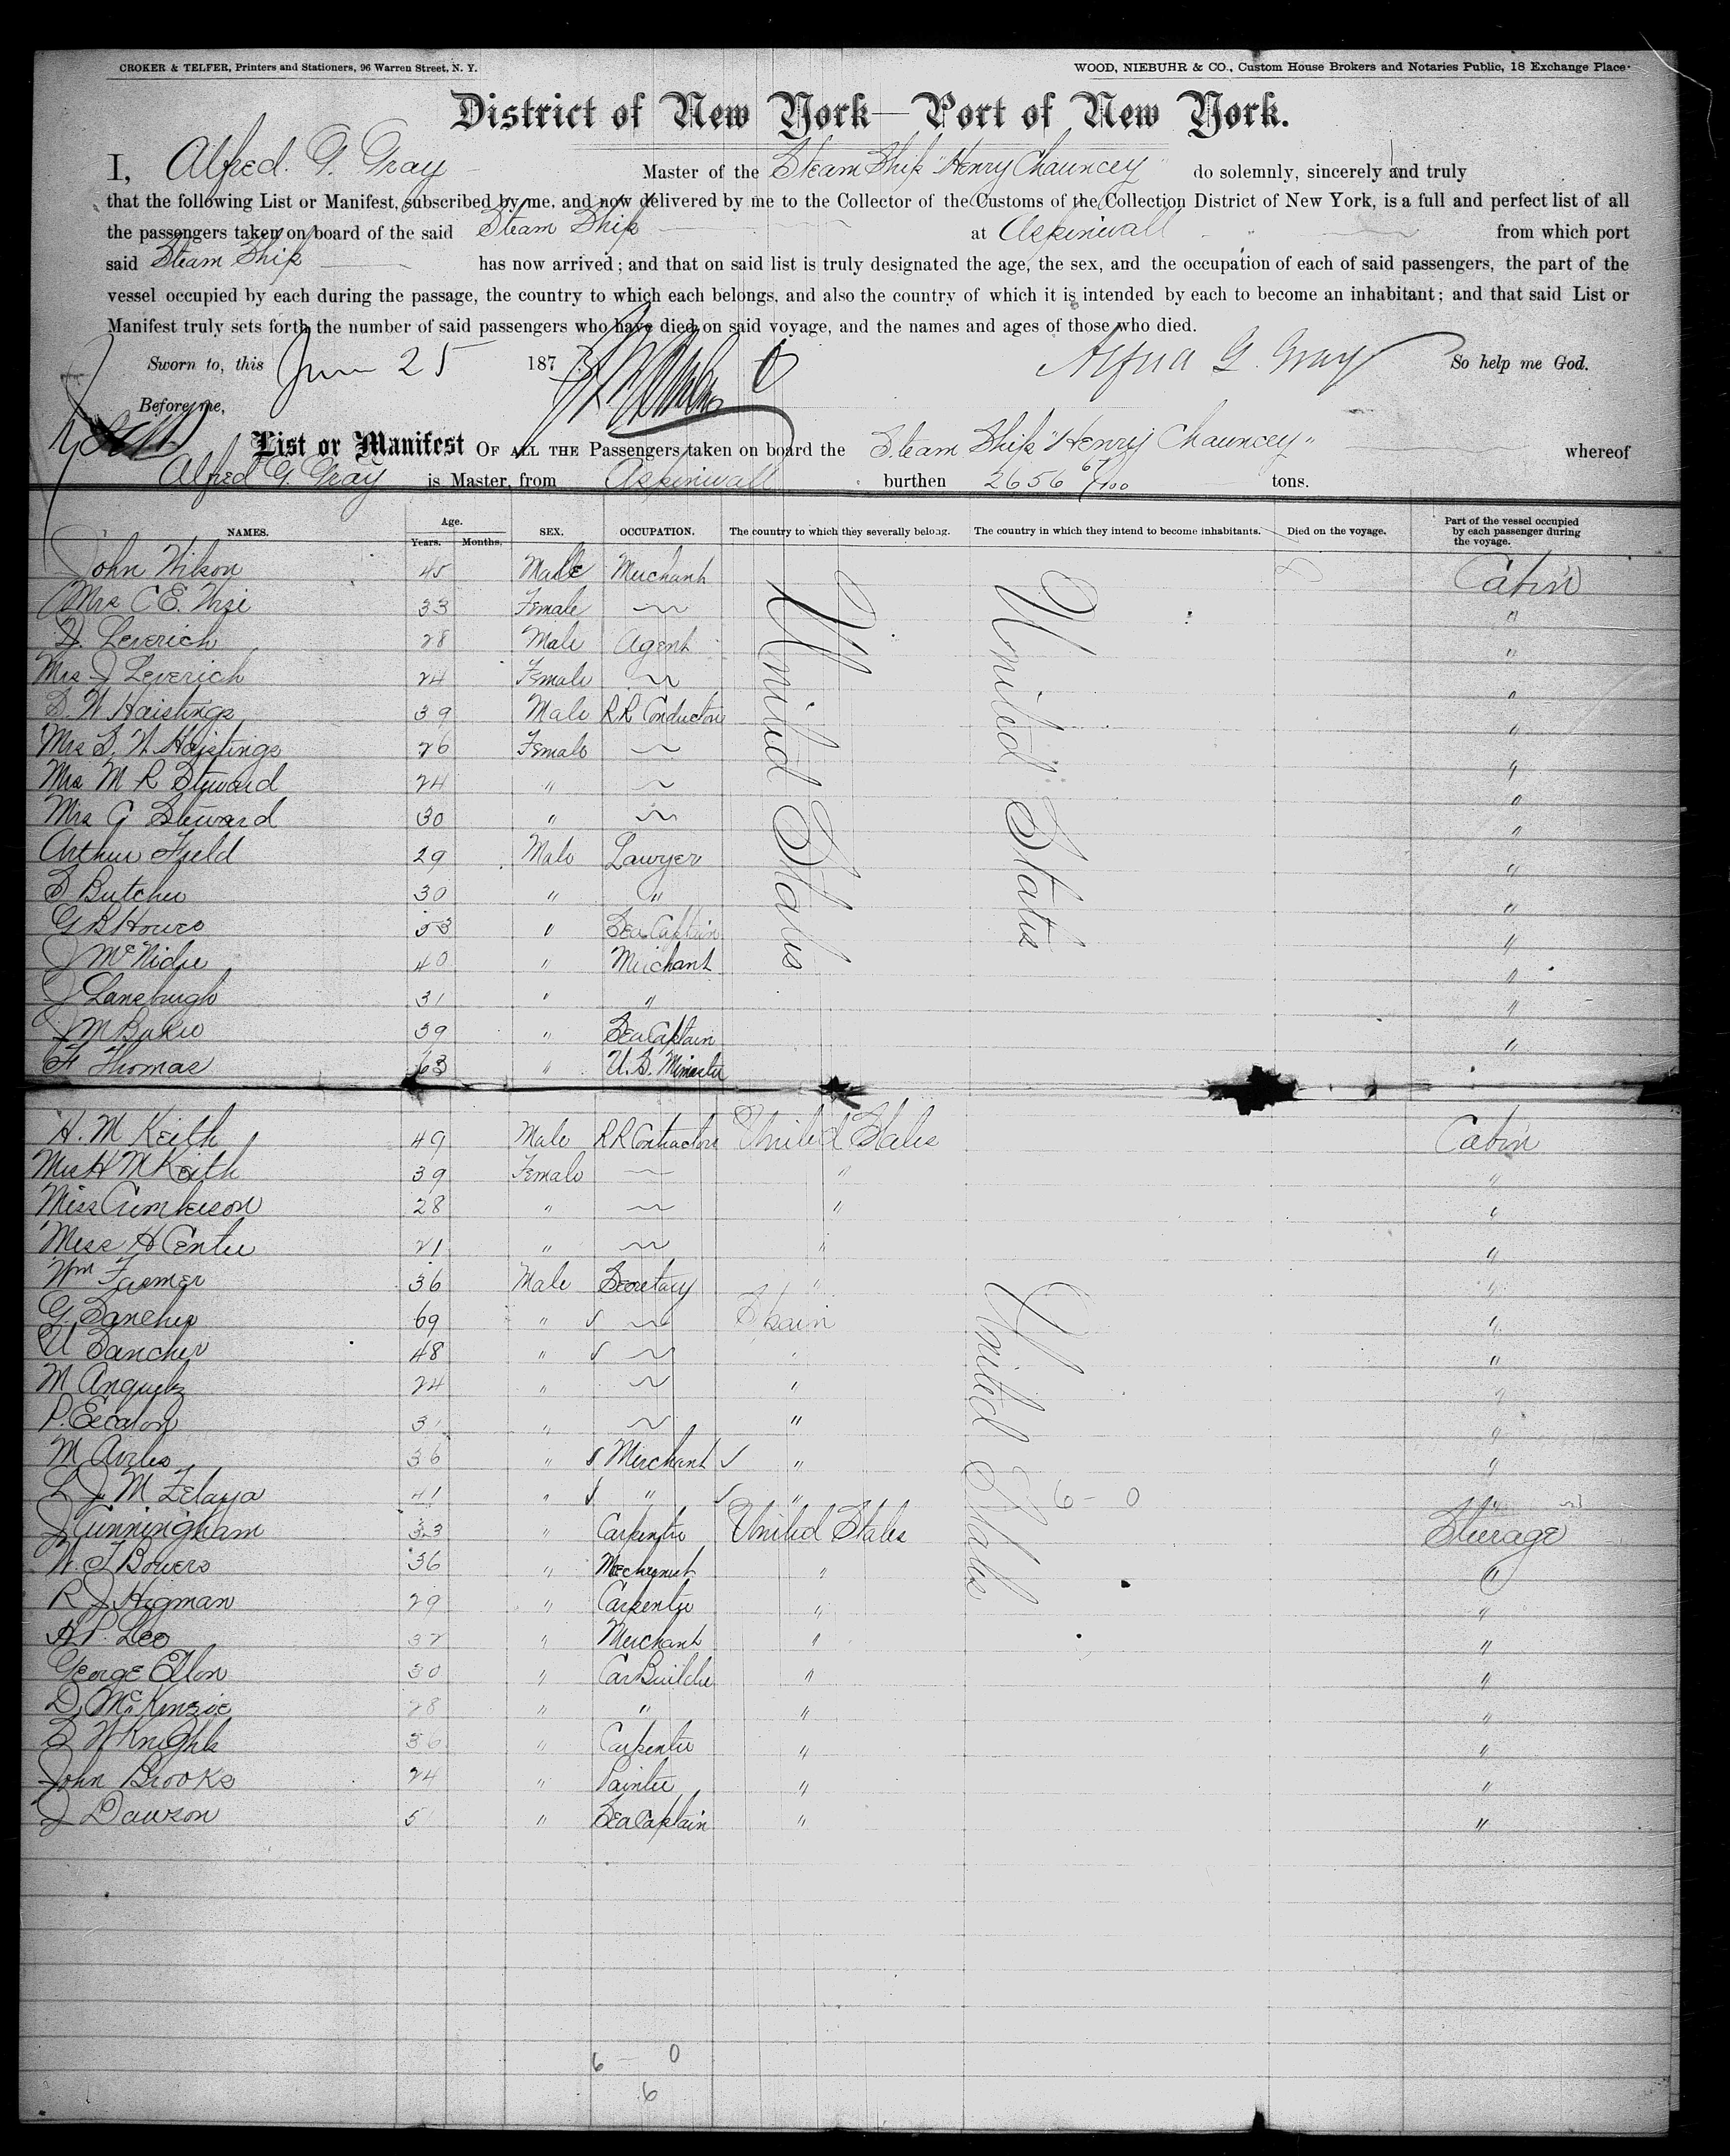 CROKER & TELFER, Printers and Stationers, 96 Warren Street, N. Y.
WOOD, NIEBUHR & CO., Custom House Brokers and Notaries Public, 18 Exchange Place.
District of New York—Port of New York.
I, Alfred. G. Gray Master of the Steam Ship "Henry Chauncey" do solemnly, sincerely and truly
that the following List or Manifest, subscribed by me, and now delivered by me to the Collector of the Customs of the Collection District of New York, is a full and perfect list of all
the passengers taken on board of the said Steam Ship at Aspinwall from which port
said Steam Ship has now arrived; and that on said list is truly designated the age, the sex, and the occupation of each of said passengers, the part of the
vessel occupied by each during the passage, the country to which each belongs, and also the country of which it is intended by each to become an inhabitant; and that said List or
Manifest truly sets forth the number of said passengers who have died on said voyage, and the names and ages of those who died.
Sworn to, this June 25 187 Alfred G. Gray So help me God.
Before me,
List or Manifest OF ALL THE Passengers taken on board the Steam Ship "Henry Chauncey" whereof
Alfred G. Gray is Master, from Aspinwall burthen 2656 67/100 tons.
NAMES. Age. Years. Months. SEX. OCCUPATION. The country to which they severally belong. The country in which they intend to become inhabitants. Died on the voyage. Part of the vessel occupied by each passenger during the voyage.
John Wilson 45 Male Merchant United States United States Cabin
Mrs C E. 33 Female "
J. Leverich 28 Male Agent "
Mrs J Leverich 24 Female "
S. W Haistings 39 Male RR Conductor "
Mrs S. W Haistings 26 Female "
Mrs M R Steward 24 " "
Mrs G Steward 30 " "
Arthur Field 29 Male Lawyer "
S Butcher 30 " " "
G B Howes 53 " Sea Captain "
J McNidie 40 " Merchant "
J Lansburgh 31 " " "
J M Baker 39 " Sea Captain "
F Thomas 63 " U. S. Minister "
H. M Keith 49 Male RR Contractor United States United States Cabin
Mrs H M Keith 39 Female " "
Miss 28 " " "
Miss H Center 21 " " "
Wm Farmer 36 Male Secretary " "
G. Sanchez 69 " Spain "
U Sanchez 48 " " "
M 24 " " "
P. Escalon 31 " " "
M Aviles 36 " Merchant " "
L J M Zelaya 41 " " " 6 - 0 "
J Cunningham 33 " Carpenter United States Steerage
W. T Bowers 36 " Mechanist " "
R J Higman 29 " Carpenter " "
H P. Leo 32 " Merchant " "
George Ellon 30 " Car Builder " "
D, McKinzie 28 " " " "
S W Knight 36 " Carpenter " "
John Brooks 24 " Painter " "
J Dawson 51 " Sea Captain " "
6 - 0
6